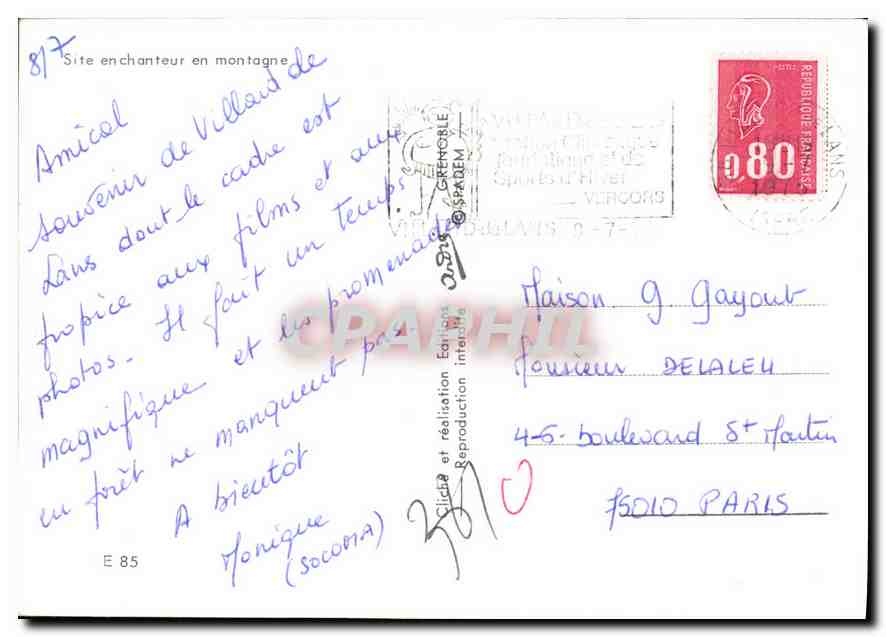 8/7
Site enchanteur en montagne
Amical
souvenir de Villard de
Lans dont le cadre est
propice aux films et aux
photos. Il fait un temps
magnifique et les promenades
en forêt ne manquent pas.
A bientôt
Monique
(SOCOMA)
E 85
Cliché et réalisation Editions André GRENOBLE
Reproduction interdite © SPADEM
VERCORS
Sports d'Hiver
REPUBLIQUE FRANÇAISE
0,80
Maison G Gayout
Monsieur DELALEU
4-6- boulevard St Martin
75010 PARIS
CPAPHIL